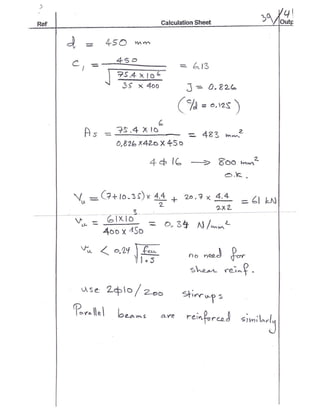 39/41
Ref Calculation Sheet Outp
d = 450 mm
C₁ = 450 / √(75.4 x 10⁶ / 35 x 400) = 6.13
J = 0.826
(c/d = 0.125)
As = 75.4 x 10⁶ / 0.826 x 420 x 450 = 483 mm²
4 ф 16 → 800 mm²
o.k.
Vu = (7+10.35) x 4.4/2 + 20.7 x 4.4/2x2 = 61 kN
vu = 61x10³ / 400 x 450 = 0.34 N/mm²
vu < 0.24 √(fcu/1.5) no need for
shear reinf.
use 2ф10/200 stirrups
Parallel beams are reinforced similarly